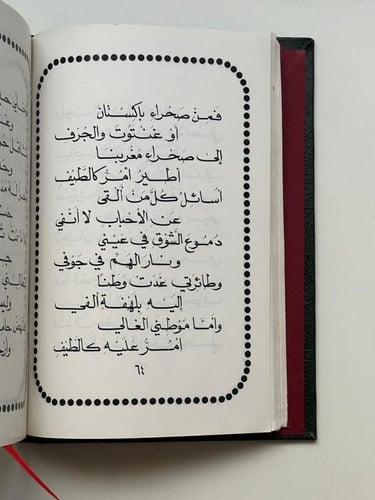 فَمِنْ صَحْرَاءِ بَاكِسْتَانَ
أَوْ غَنْتُوتَ وَالْجُرْفِ
إِلَى صَحْرَاءِ مَغْرِبِنَا
أَطِيرُ أَمُرُّ كَالطَّيْفِ
أُسَائِلُ كُلَّ مَنْ أَلْقَى
عَنِ الْأَحْبَابِ لَا أَنْفِي
دُمُوعَ الشَّوْقِ فِي عَيْنِي
وَنَارَ الْهَمِّ فِي جَوْفِي
وَطَائِرَتِي غَدَتْ وَطَنًا
إِلَيْهِ بِلَهْفَةٍ أُلْفِي
وَأَمَّا مَوْطِنِي الْغَالِي
أَمُرُّ عَلَيْهِ كَالطَّيْفِ
٦٤